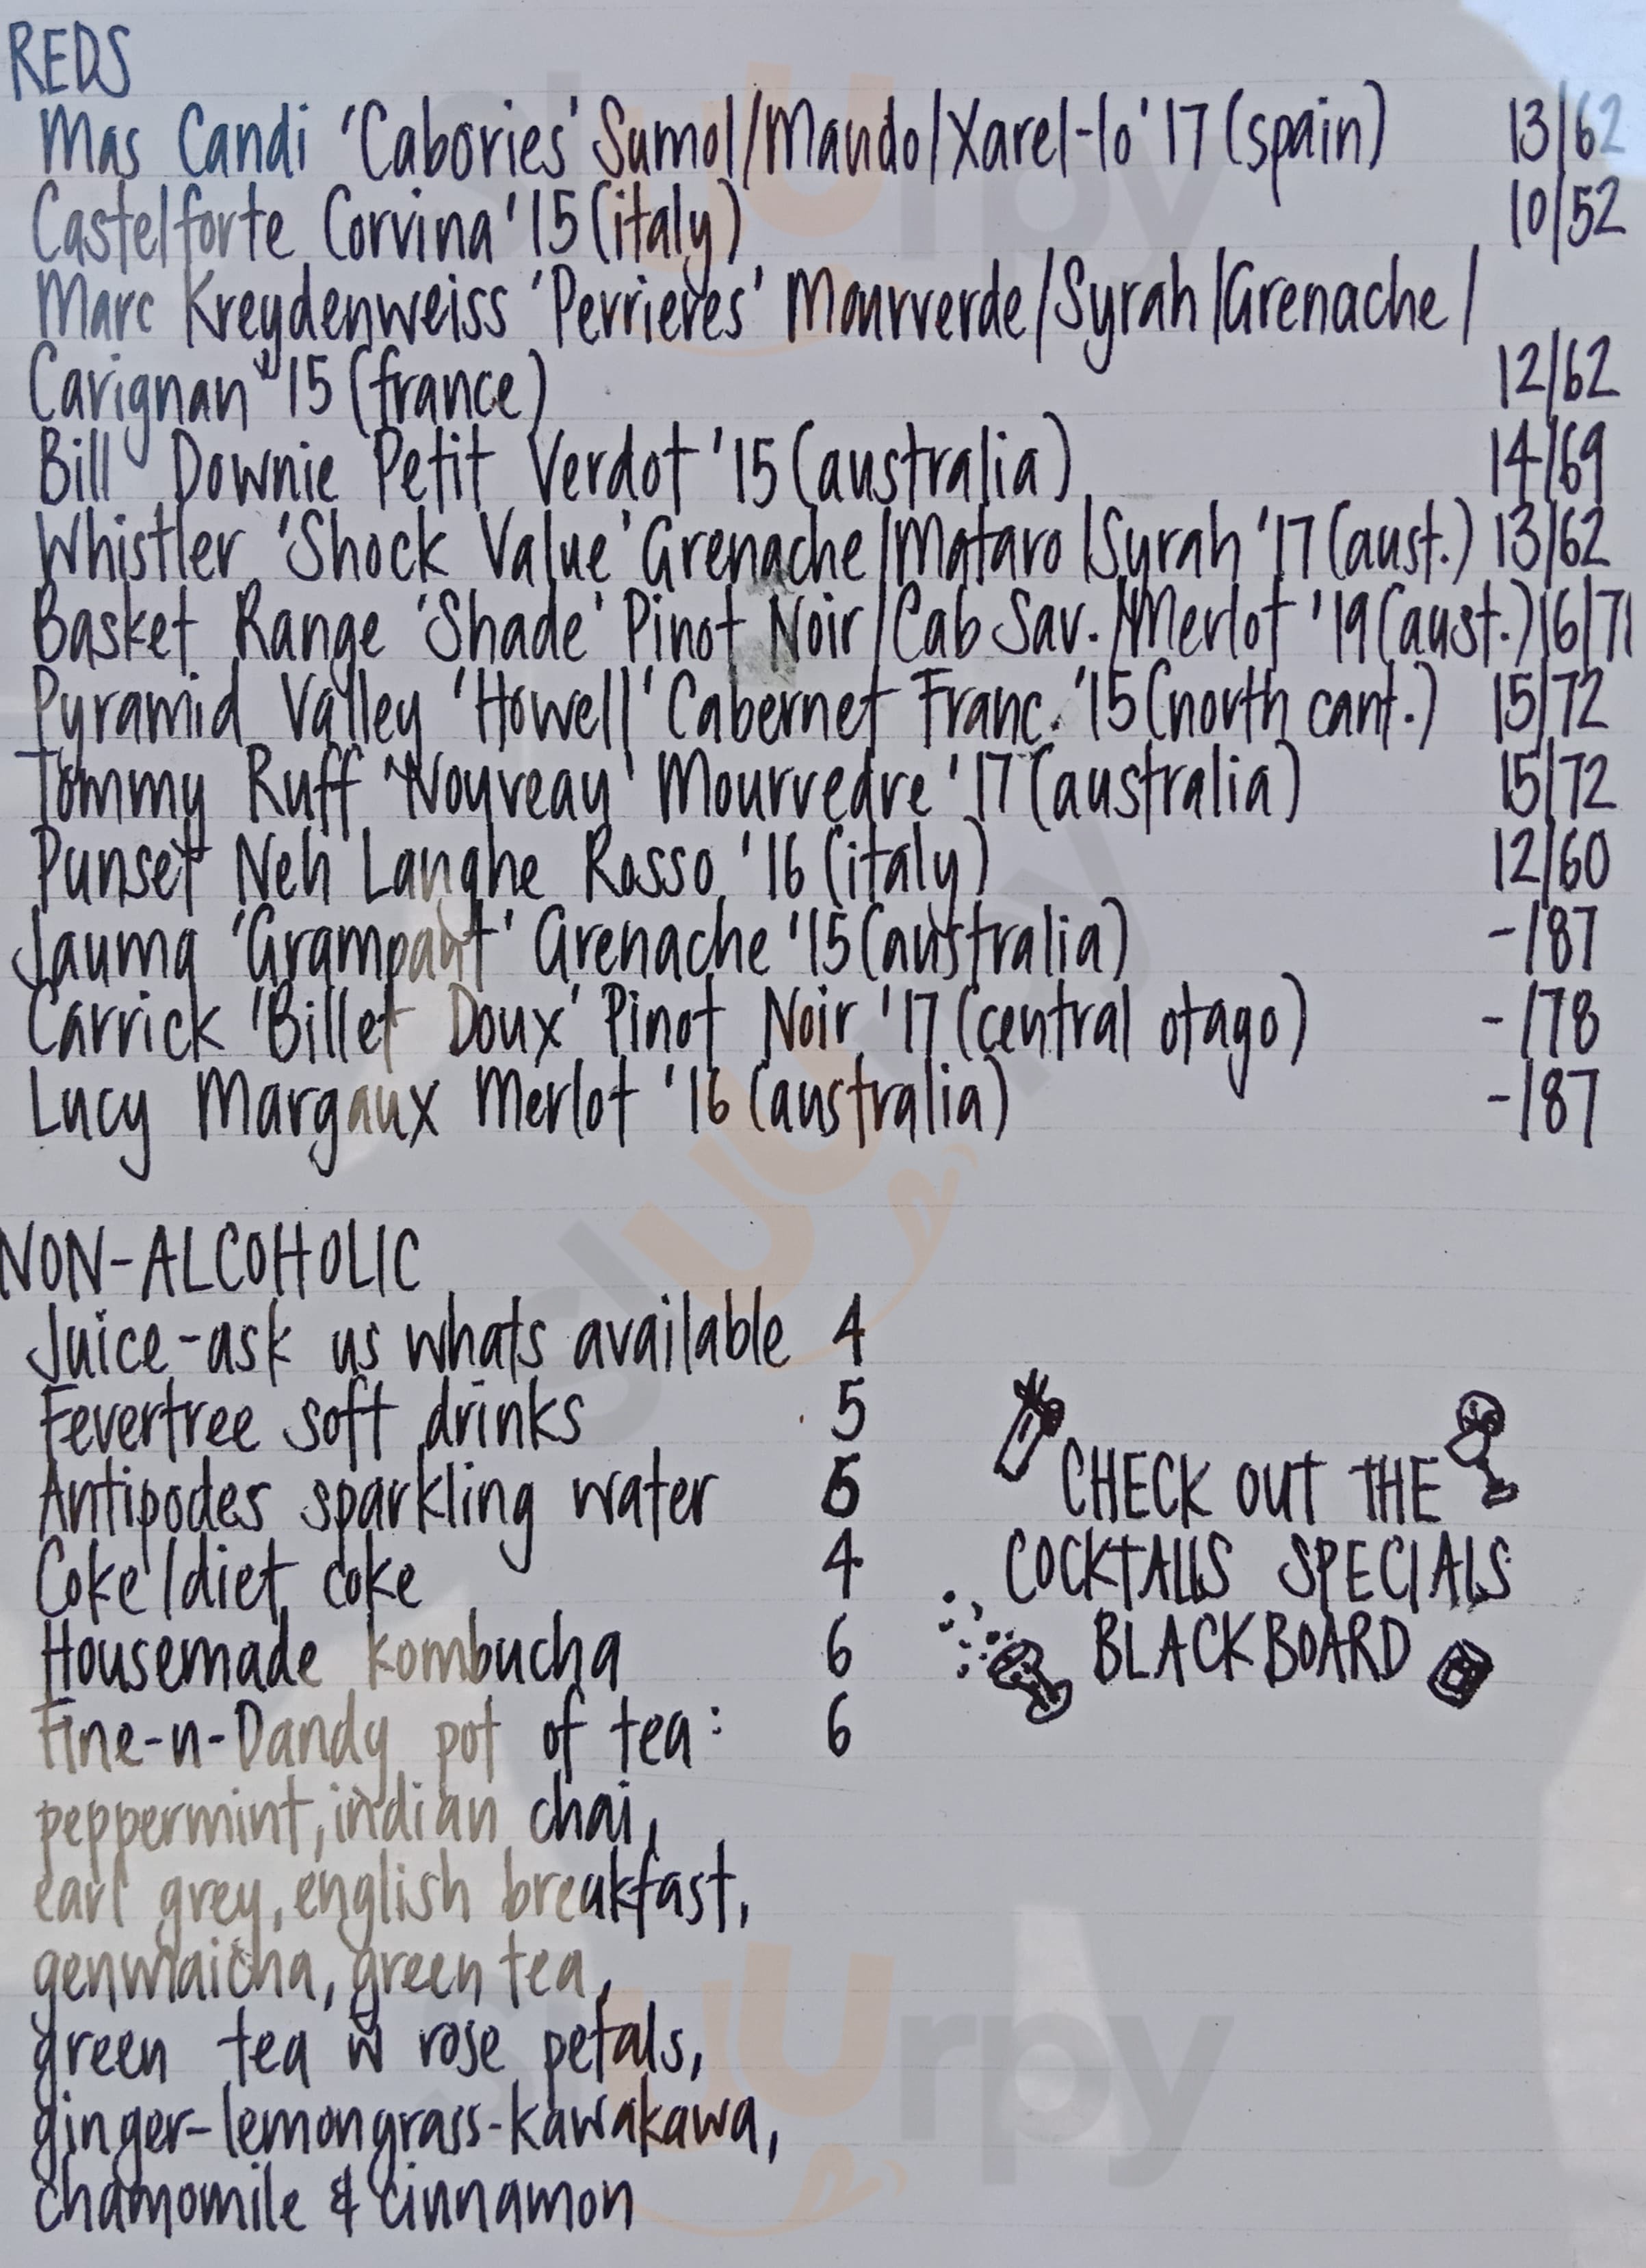 REDS
Mas Candi 'Cabories' Sumol/Mando/Xarel-lo '17 (spain) 13/62
Castelforte Corvina '15 (italy) 10/52
Marc Kreydenweiss 'Perrieres' Mourverde/Syrah/Grenache/
Carignan '15 (france) 12/62
Bill Downie Petit Verdot '15 (australia) 14/69
Whistler 'Shock Value' Grenache/Mataro/Syrah '17 (aust.) 13/62
Basket Range 'Shade' Pinot Noir/Cab Sav./Merlot '19 (aust.) 16/71
Pyramid Valley 'Howell' Cabernet Franc. '15 (north cant.) 15/72
Tommy Ruff 'Nouveau' Mourvedre '17 (australia) 15/72
Punset Neh Langhe Rosso '16 (italy) 12/60
Jauma 'Grampant' Grenache '15 (australia) -/87
Carrick 'Billet Doux' Pinot Noir '17 (central otago) -/78
Lucy Margaux Merlot '16 (australia) -/87
NON-ALCOHOLIC
Juice-ask us whats available 4
Fevertree soft drinks 5
Antipodes sparkling water 5
Coke/diet coke 4
Housemade kombucha 6
Fine-n-Dandy pot of tea: 6
peppermint, indian chai,
earl grey, english breakfast,
genmaicha, green tea,
green tea w rose petals,
ginger-lemongrass-kawakawa,
chamomile & cinnamon
CHECK OUT THE
COCKTAILS SPECIALS
BLACKBOARD
slurpy
slurpy
slurpy